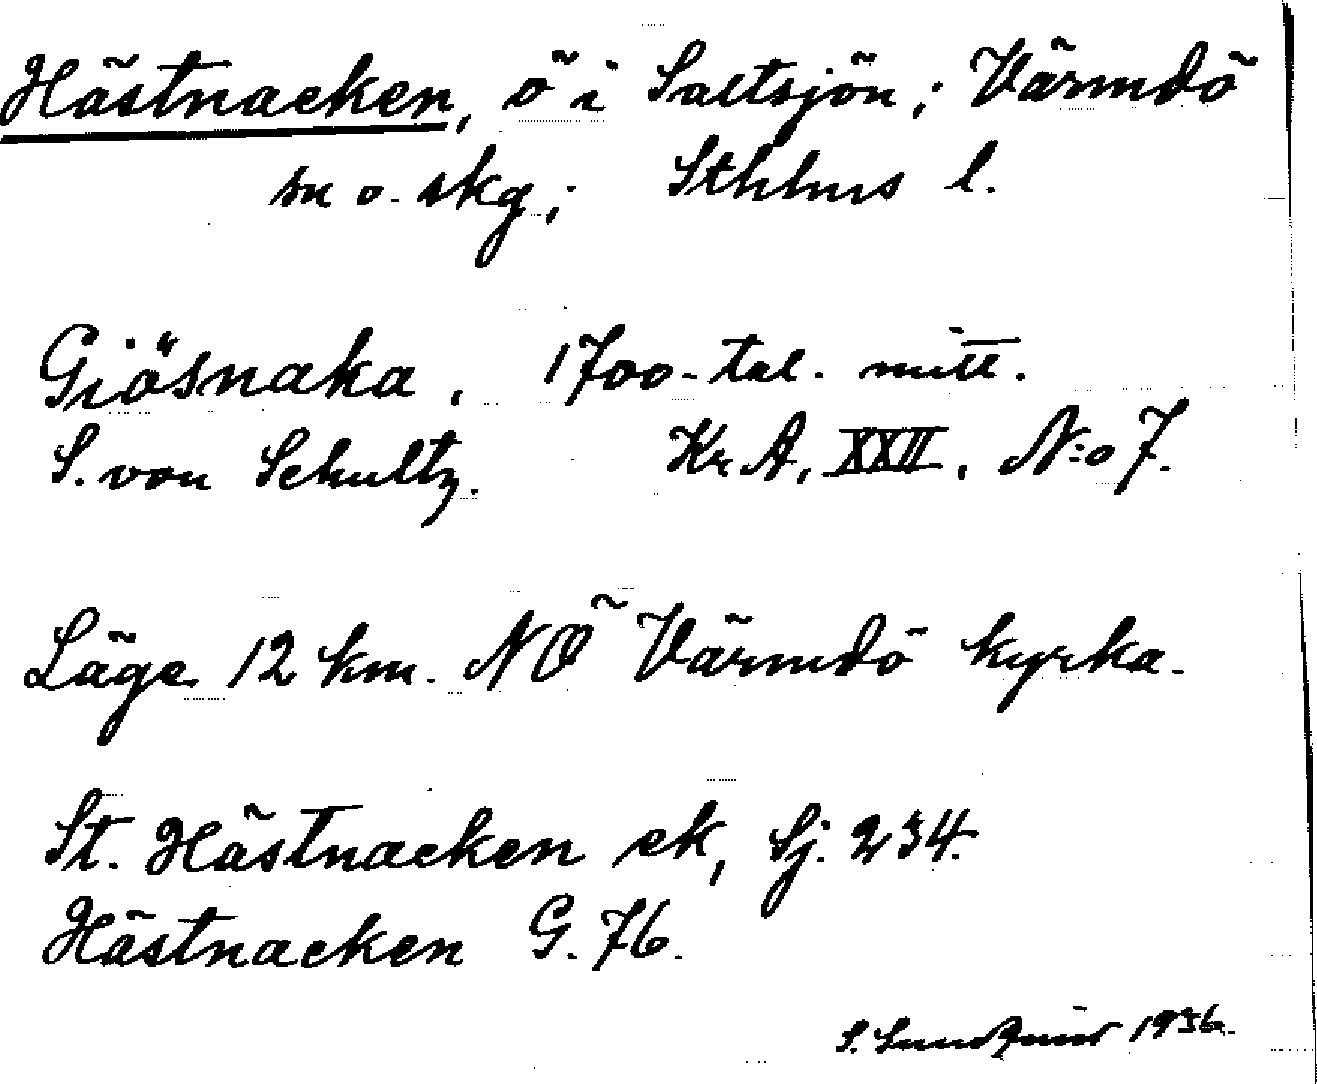 Hästnacken, ö i Saltsjön; Värmdö
sn o. skg; Sthlms l.
Giösnaka. 1700-tal. mitt.
S. von Schultz. Kr. A, XXII. N:o 7.
Läge 12 km. NÖ Värmdö kyrka.
St. Hästnacken ek, Sj. 234.
Hästnacken G. 76.
S. 1936.